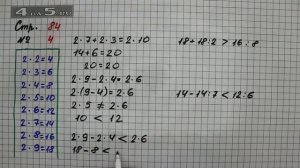 4 5.RU
Стр. 84
№ 4
2·2=4
2·3=6
2·4=8
2·5=10
2·6=12
2·7=14
2·8=16
2·9=18
2·7+2·3=2·10
14+6=20
20=20
2·9-2·4=2·6
2·(9-4)=2·6
2·5≠2·6
10<12
2·9-2·4<2·6
18-8<
18+18:2>16:8
14-14:7<12:6